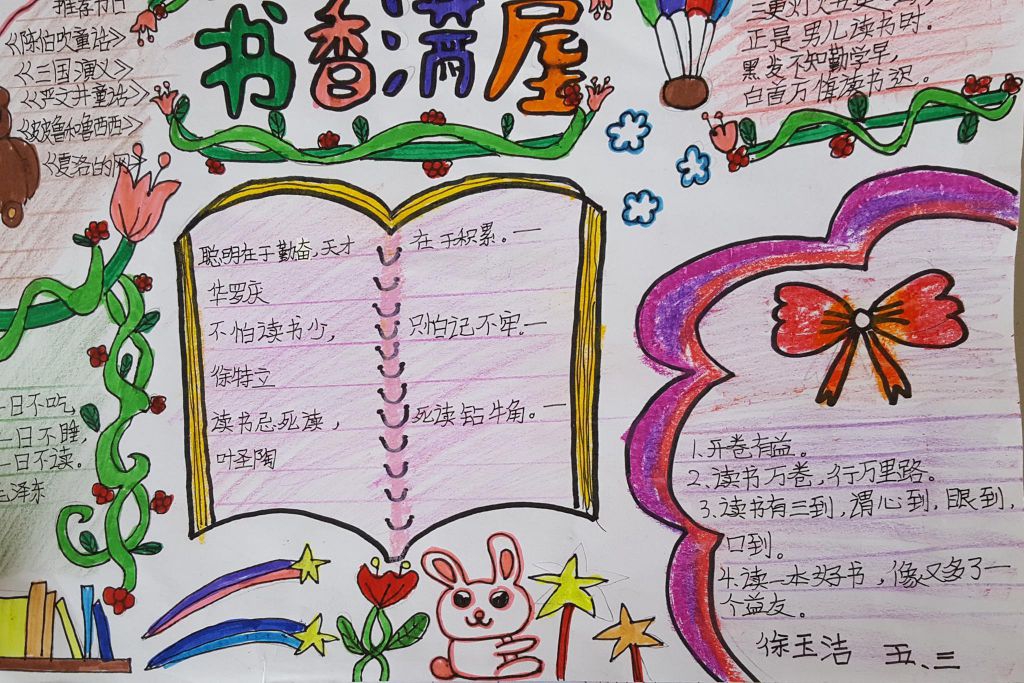 推荐书目
《陈伯吹童话》
《三国演义》
《严文井童话》
《皮皮鲁和鲁西西》
《夏洛的网》
书香满屋
正是男儿读书时。
黑发不知勤学早,
白首方悔读书迟。
聪明在于勤奋,天才在于积累。一
华罗庆
不怕读书少,只怕记不牢。一
徐特立
读书忌死读,死读钻牛角。一
叶圣陶
一日不吃,
一日不睡,
一日不读。
毛泽东
1.开卷有益。
2.读书万卷,行万里路。
3.读书有三到,谓心到,眼到,
口到。
4.读一本好书,像又多了一
个益友。
徐玉洁 五、三